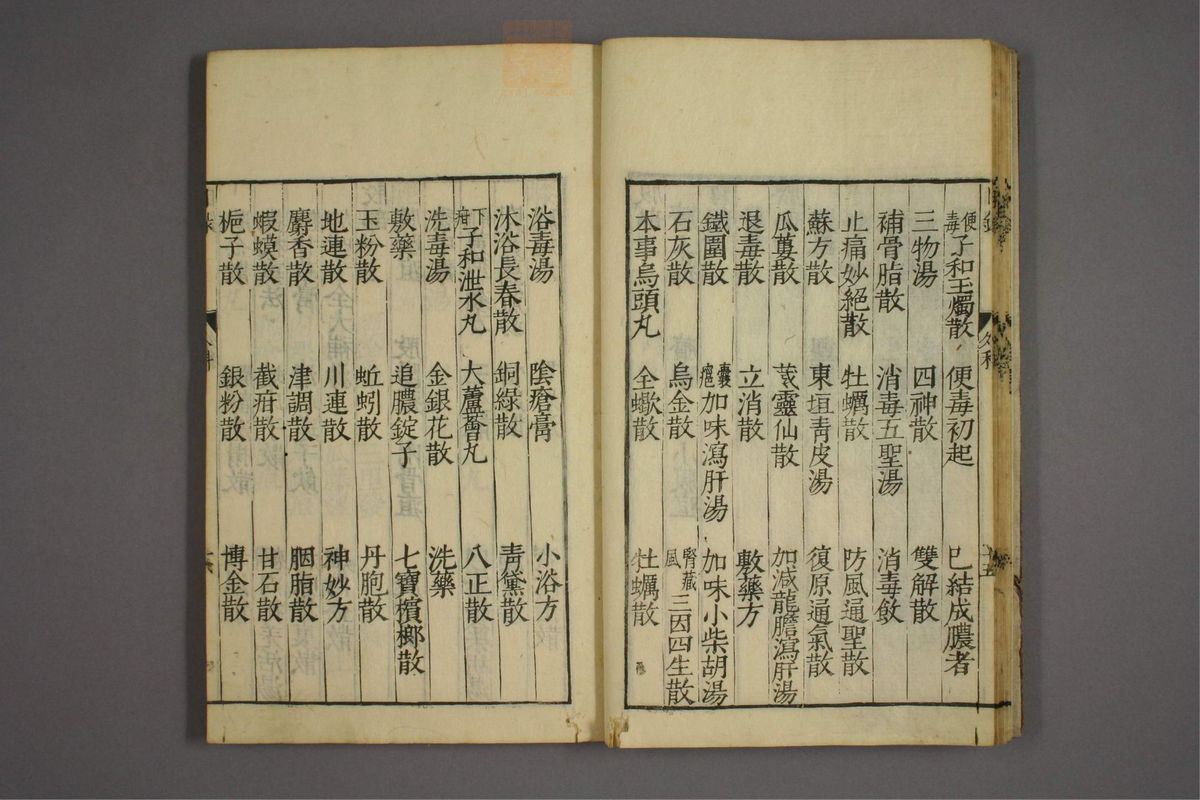 便毒 子和玉燭散 便毒初起 已結成膿者
三物湯 四神散 雙解散
補骨脂散 消毒五聖湯 消毒飲
止痛妙絕散 牡蠣散 防風通聖散
蘇方散 東垣青皮湯 復原通氣散
瓜蔞散 靈仙散 加減龍膽瀉肝湯
退毒散 立消散 敷藥方
鐵圍散 囊癰 加味瀉肝湯 加味小柴胡湯
石灰散 烏金散 腎藏風 三因四生散
本事烏頭丸 全蠍散 牡蠣散
浴毒湯 陰瘡膏 小浴方
沐浴長春散 銅綠散 青黛散
下疳 子和泄水丸 大蘆薈丸 八正散
洗毒湯 金銀花散 洗藥
敷藥 追膿錠子 七寶檳榔散
玉粉散 蚯蚓散 丹胞散
地連散 川連散 神妙方
麝香散 津調散 胭脂散
蝦蟆散 截疳散 甘石散
梔子散 銀粉散 博金散